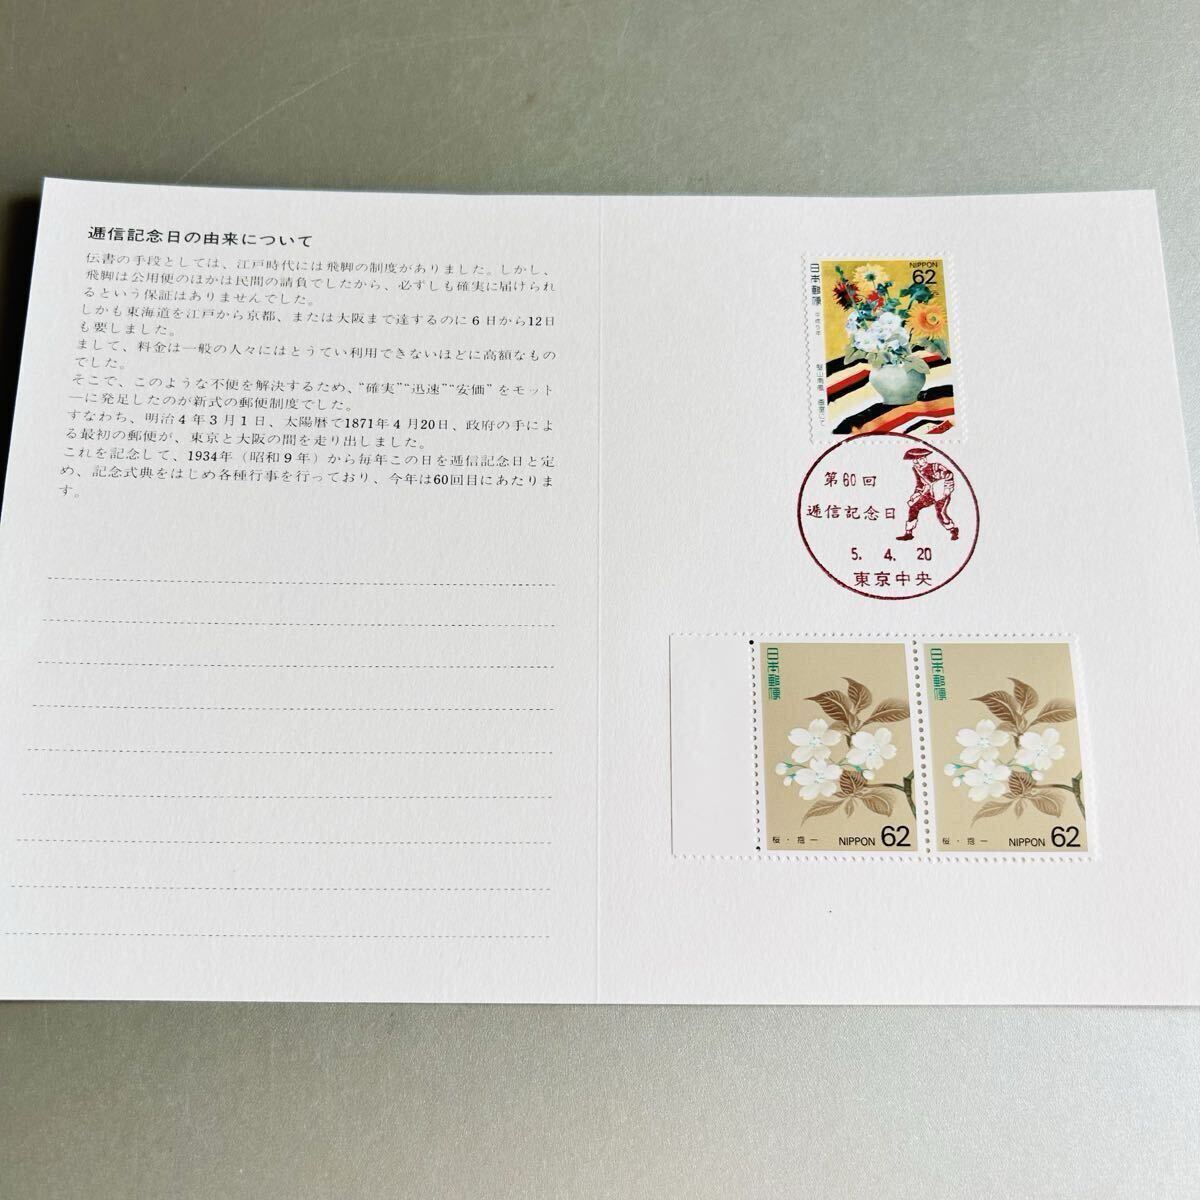 逓信記念日の由来について
伝書の手段としては、江戸時代には飛脚の制度がありました。しかし、
飛脚は公用便のほかは民間の請負でしたから、必ずしも確実に届けられ
るという保証はありませんでした。
しかも東海道を江戸から京都、または大阪まで達するのに6日から12日
も要しました。
まして、料金は一般の人々にはとうてい利用できないほどに高額なもの
でした。
そこで、このような不便を解決するため、“確実”“迅速”“安価”をモット
ーに発足したのが新式の郵便制度でした。
すなわち、明治4年3月1日、太陽暦で1871年4月20日、政府の手によ
る最初の郵便が、東京と大阪の間を走り出しました。
これを記念して、1934年（昭和9年）から毎年この日を逓信記念日と定
め、記念式典をはじめ各種行事を行っており、今年は60回目にあたりま
す。
NIPPON
62
日本郵便
平成5年
堅山南風 画室にて
1993
第60回
逓信記念日
5. 4. 20
東京中央
日本郵便
桜・抱一 NIPPON 62
日本郵便
桜・抱一 NIPPON 62